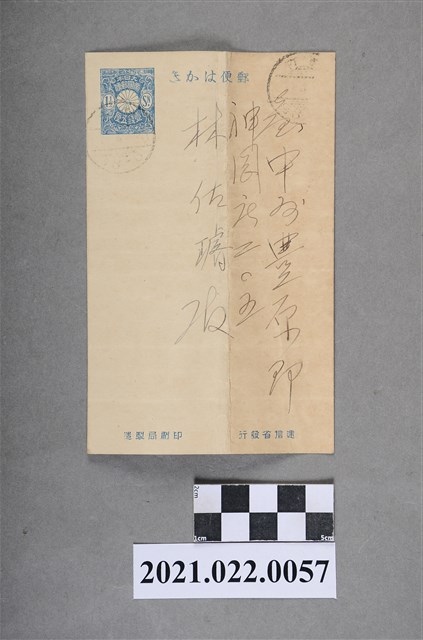 郵便はかき
台中州豊原郡
神岡庄二〇五
林佐璿殿
逓信省發行
印刷局製造
2cm
1cm
5cm
2021.022.0057